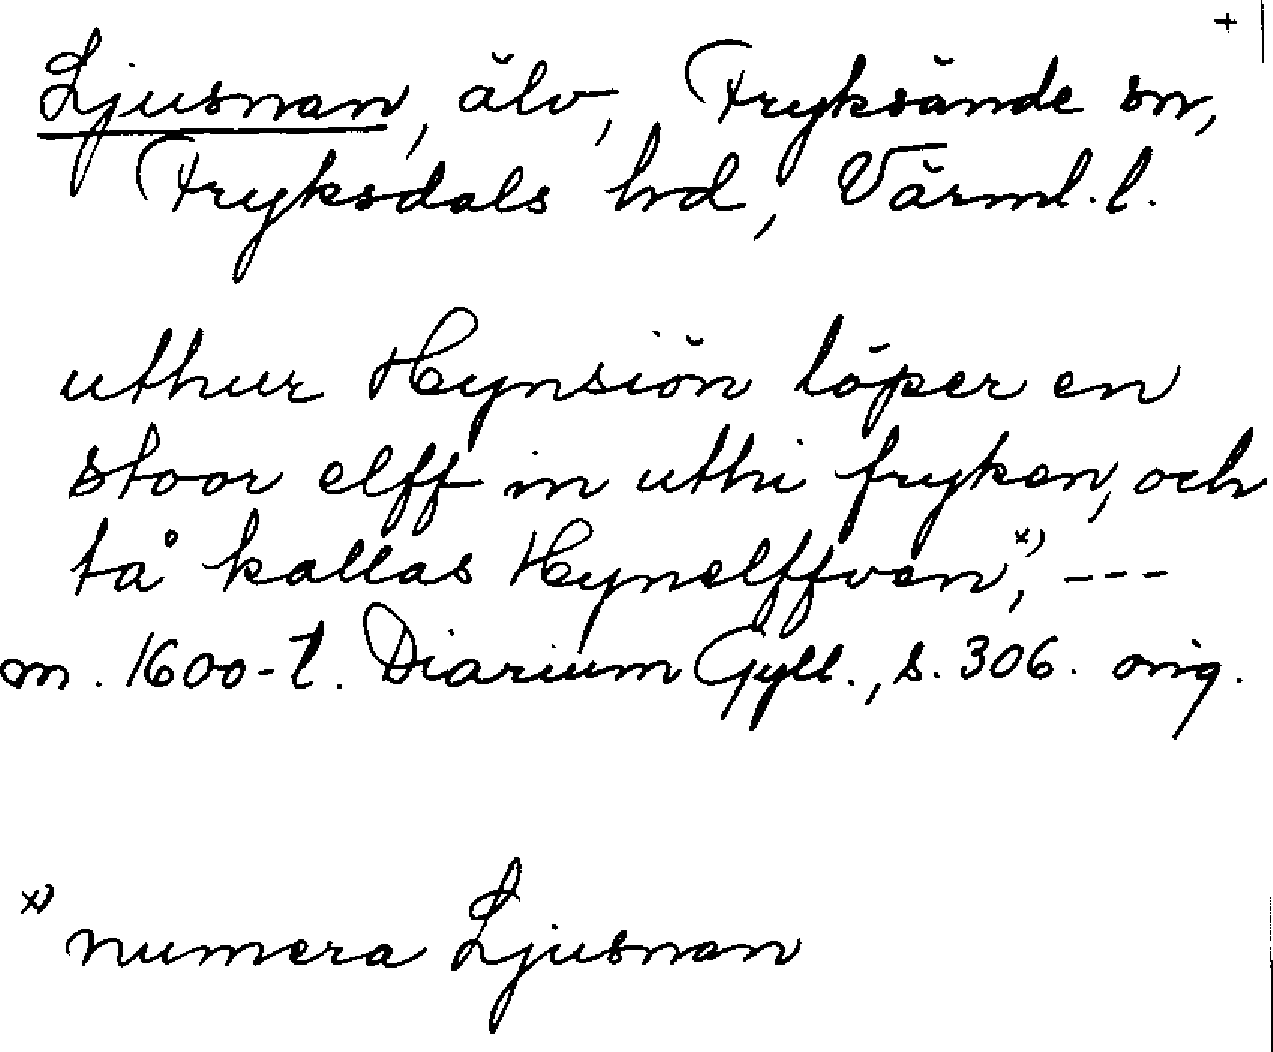 +
Ljusnan, älv, Fryksände sn,
Fryksdals hd, Värml. l.
uthur Hynsiön löper en
stoor elff in uthi fryken, och
tå kallas Hynelffven,x) ---
m. 1600-t. Diarium Gyll., s. 306. orig.
x) numera Ljusnan